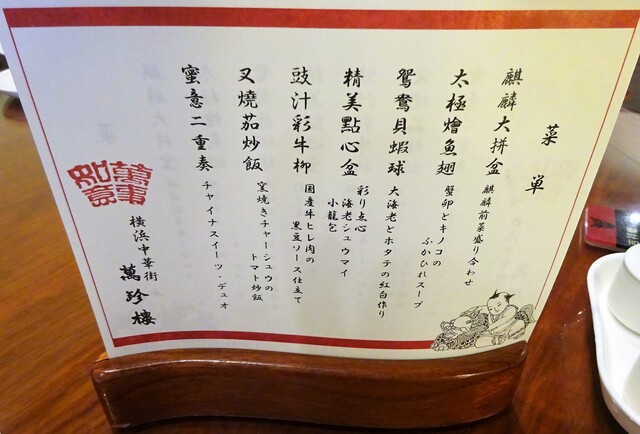 菜単
麒麟大拼盆
麒麟前菜盛り合わせ
太極燴魚翅
蟹卵とキノコの
ふかひれスープ
鴛鴦貝蝦球
大海老とホタテの紅白作り
精美點心盒
彩り点心
海老シュウマイ
小籠包
豉汁彩牛柳
国産牛ヒレ肉の
黒豆ソース仕立て
叉燒茄炒飯
窯焼きチャーシュウの
トマト炒飯
蜜意二重奏
チャイナスイーツ・デュオ
萬事如意
横浜中華街
萬珍樓